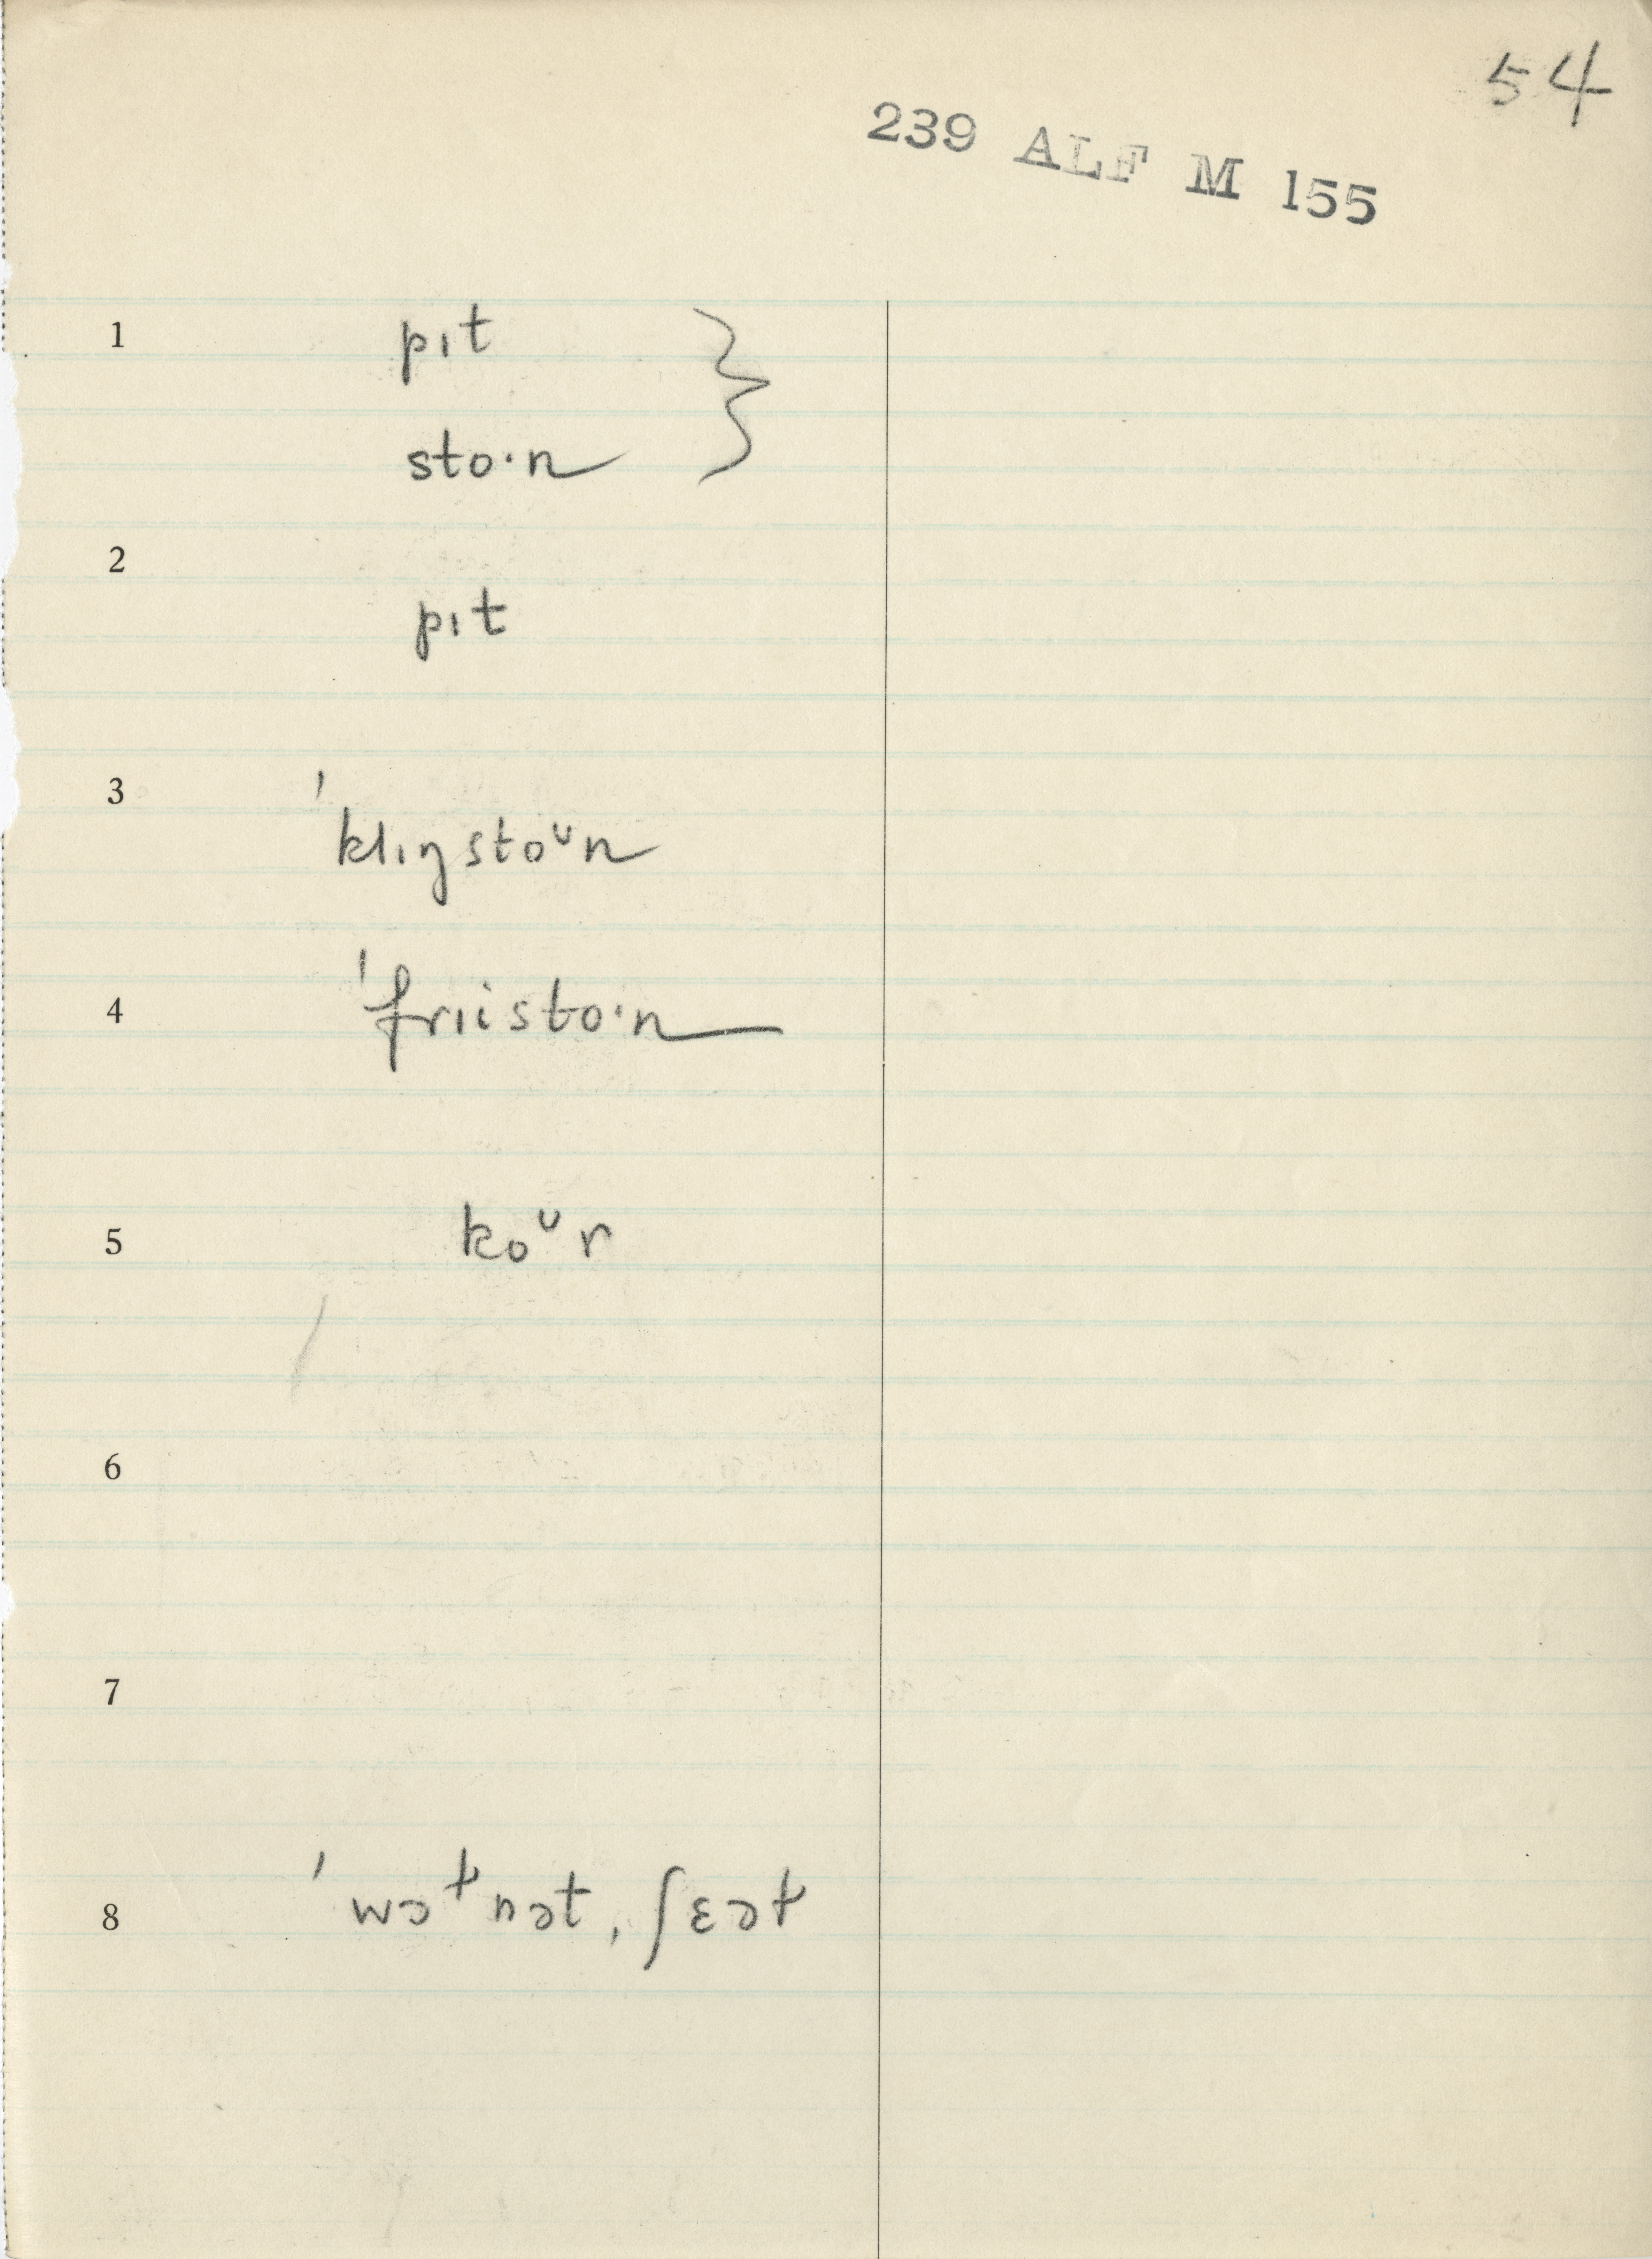 54
239 ALF M 155
1 pɪt }
stoˑn
2 pɪt
3 ˈklɪŋstoᶷn
4 ˈfriistoˑn
5 koᶷr
6
7
8 ˈwɔɫnət, ʃɛəɫ